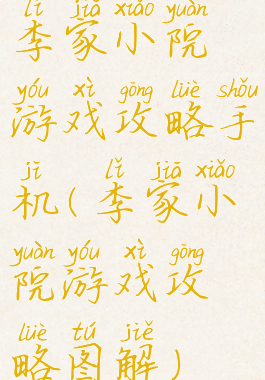 lǐ jiā xiǎo yuàn
李家小院
yóu xì gōng lüè shǒu
游戏攻略手
jī lǐ jiā xiǎo
机(李家小
yuàn yóu xì gōng
院游戏攻
lüè tú jiě
略图解)